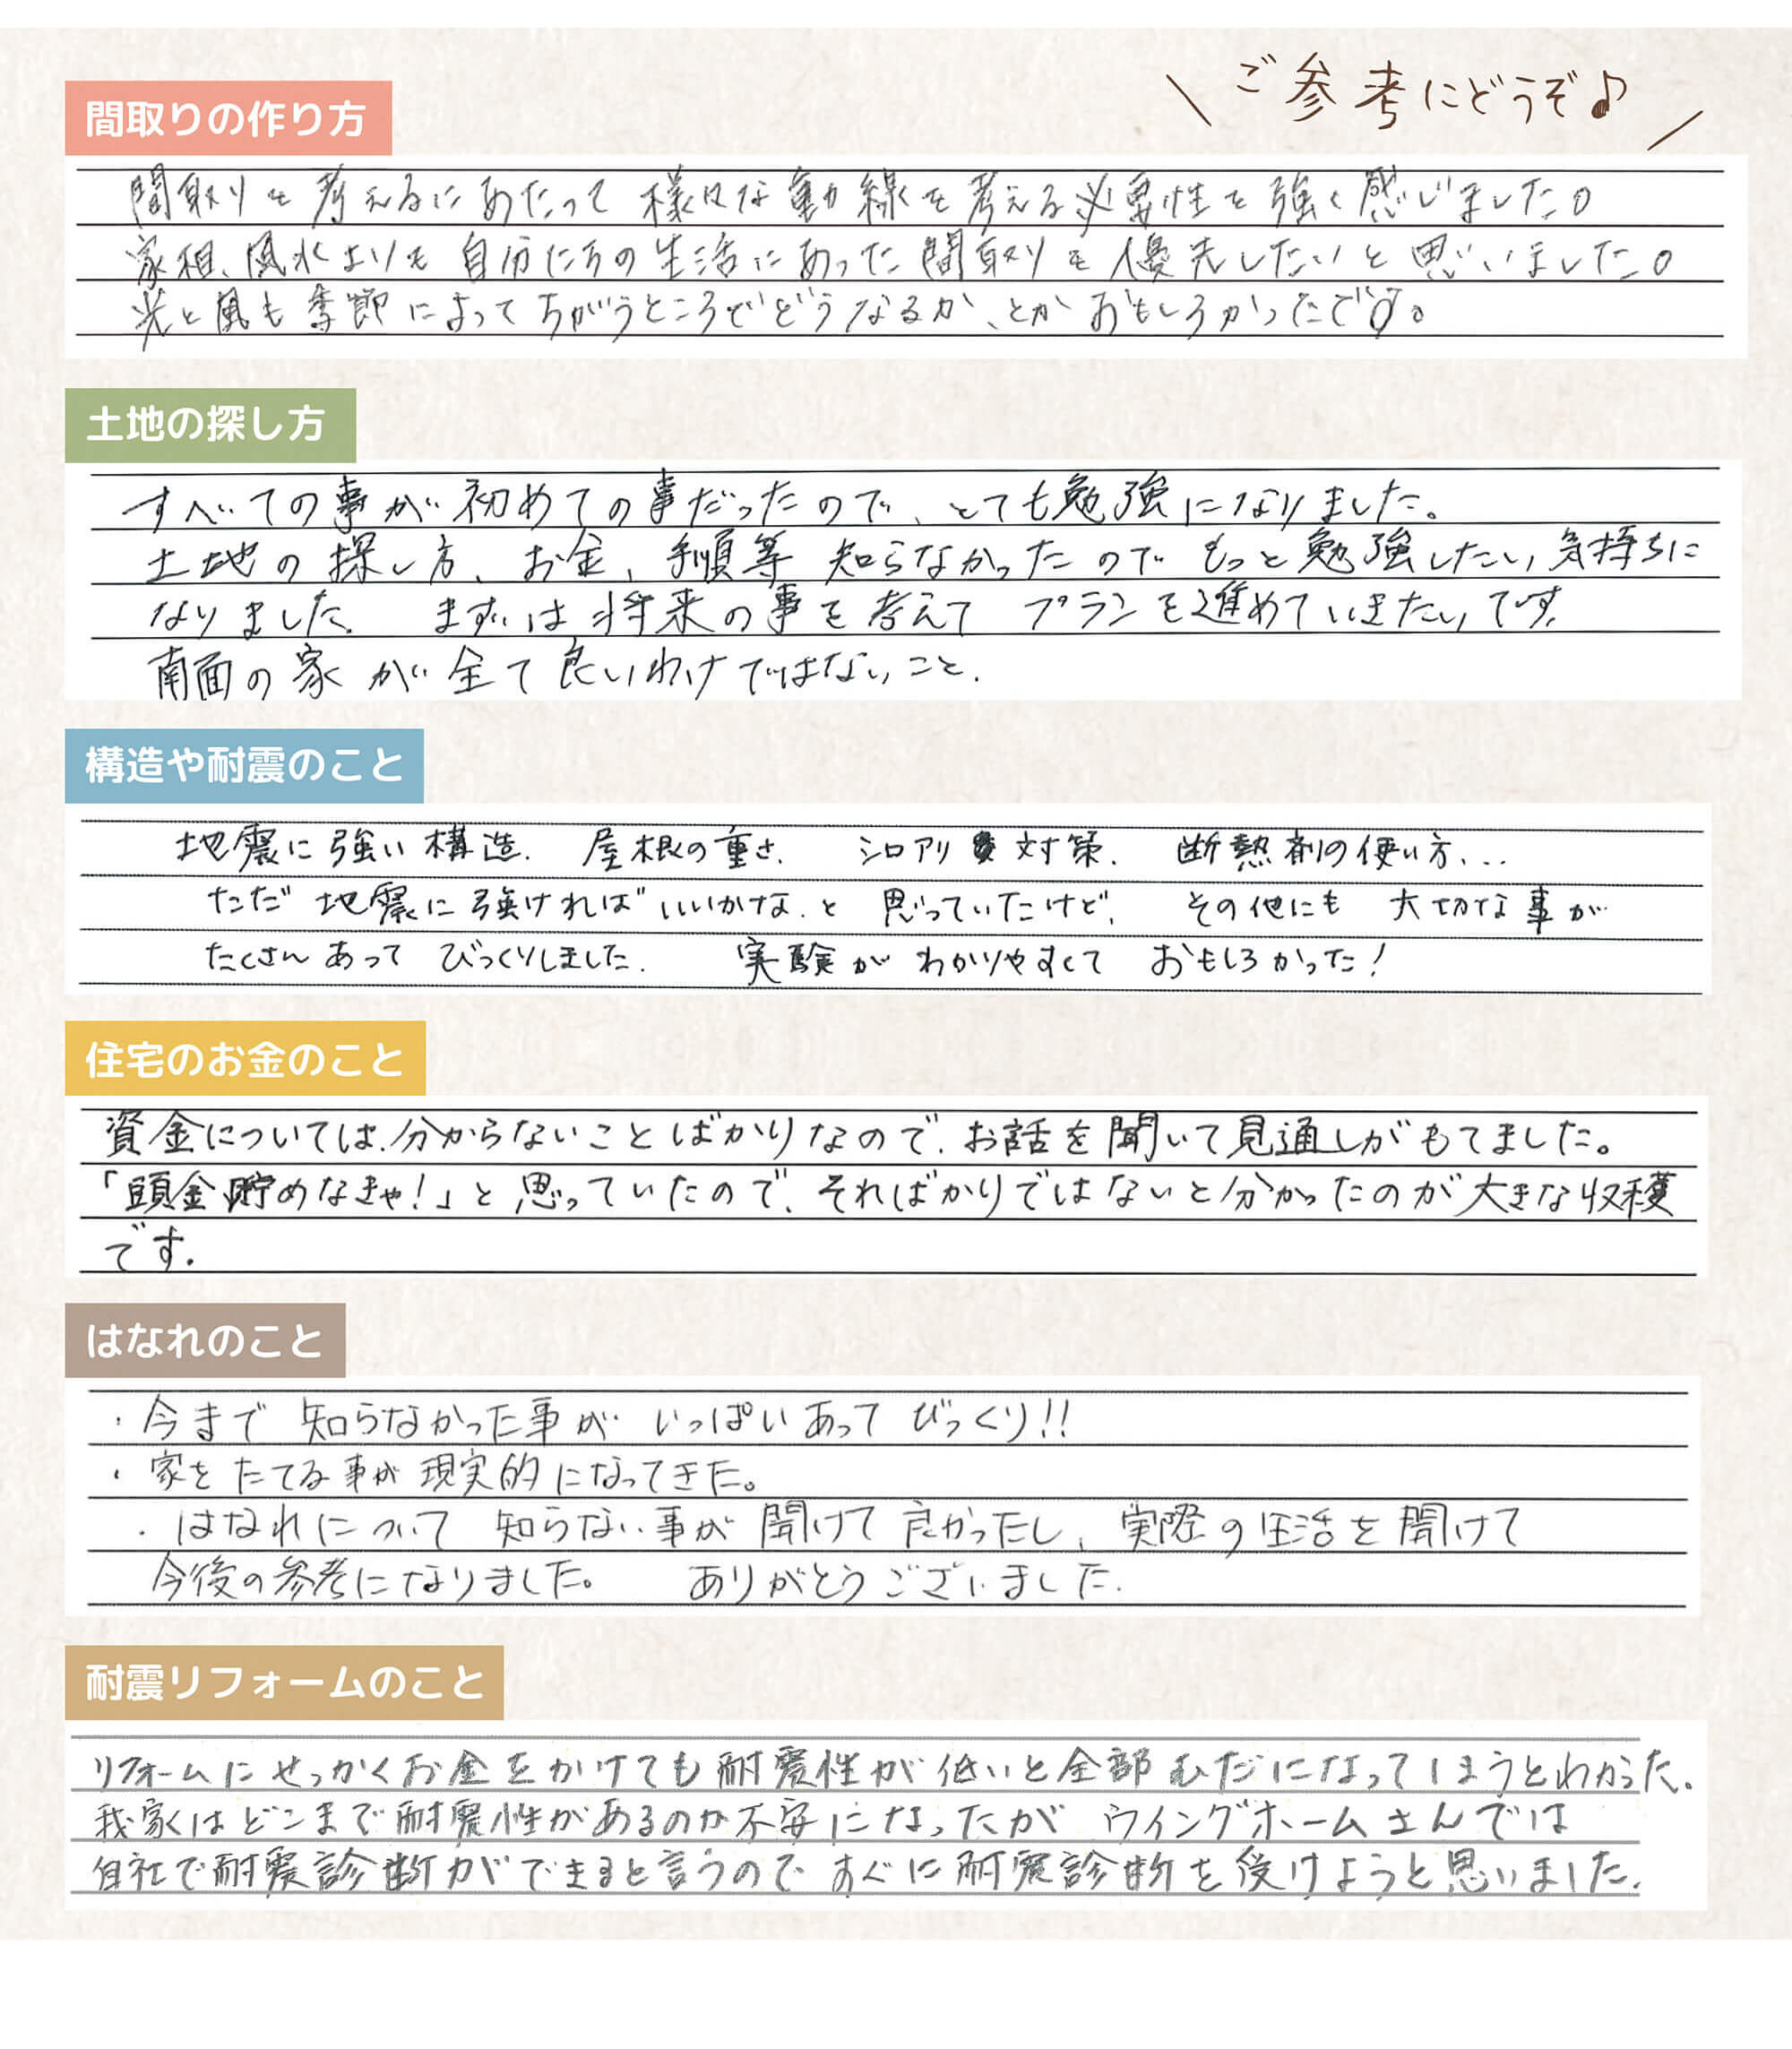 ご参考にどうぞ♪
間取りの作り方
間取りを考えるにあたって様々な動線を考える必要性を強く感じました。
家相、風水よりも自分たちの生活にあった間取りを優先したいと思いました。
光と風も季節によってちがうところでどうなるか、とかおもしろかったです。
土地の探し方
すべての事が初めての事だったので、とても勉強になりました。
土地の探し方、お金、手順等 知らなかったので もっと勉強したい気持ちに
なりました。 まずは将来の事を考えて プランを進めていきたいです。
南面の家が全て良いわけではないこと。
構造や耐震のこと
地震に強い構造、 屋根の重さ、 シロアリ対策、 断熱剤の使い方、…
ただ 地震に強ければいいかな、と 思っていたけど、 その他にも 大切な事が
たくさんあって びっくりしました。 実験が わかりやすくて おもしろかった！
住宅のお金のこと
資金については、分からないことばかりなので、お話を聞いて見通しがもてました。
「頭金貯めなきゃ！」と思っていたので、そればかりではないと分かったのが大きな収穫
です。
はなれのこと
・今まで 知らなかった事が いっぱいあって びっくり!!
・家をたてる事が現実的になってきた。
・はなれについて 知らない事が 聞けて良かったし、実際の生活を聞けて
今後の参考になりました。 ありがとうございました。
耐震リフォームのこと
リフォームにせっかくお金をかけても耐震性が低いと全部むだになってしまうとわかった。
我家はどこまで耐震性があるのか不安になったが ウイングホームさんでは
自社で耐震診断ができると言うので すぐに耐震診断を受けようと思いました。